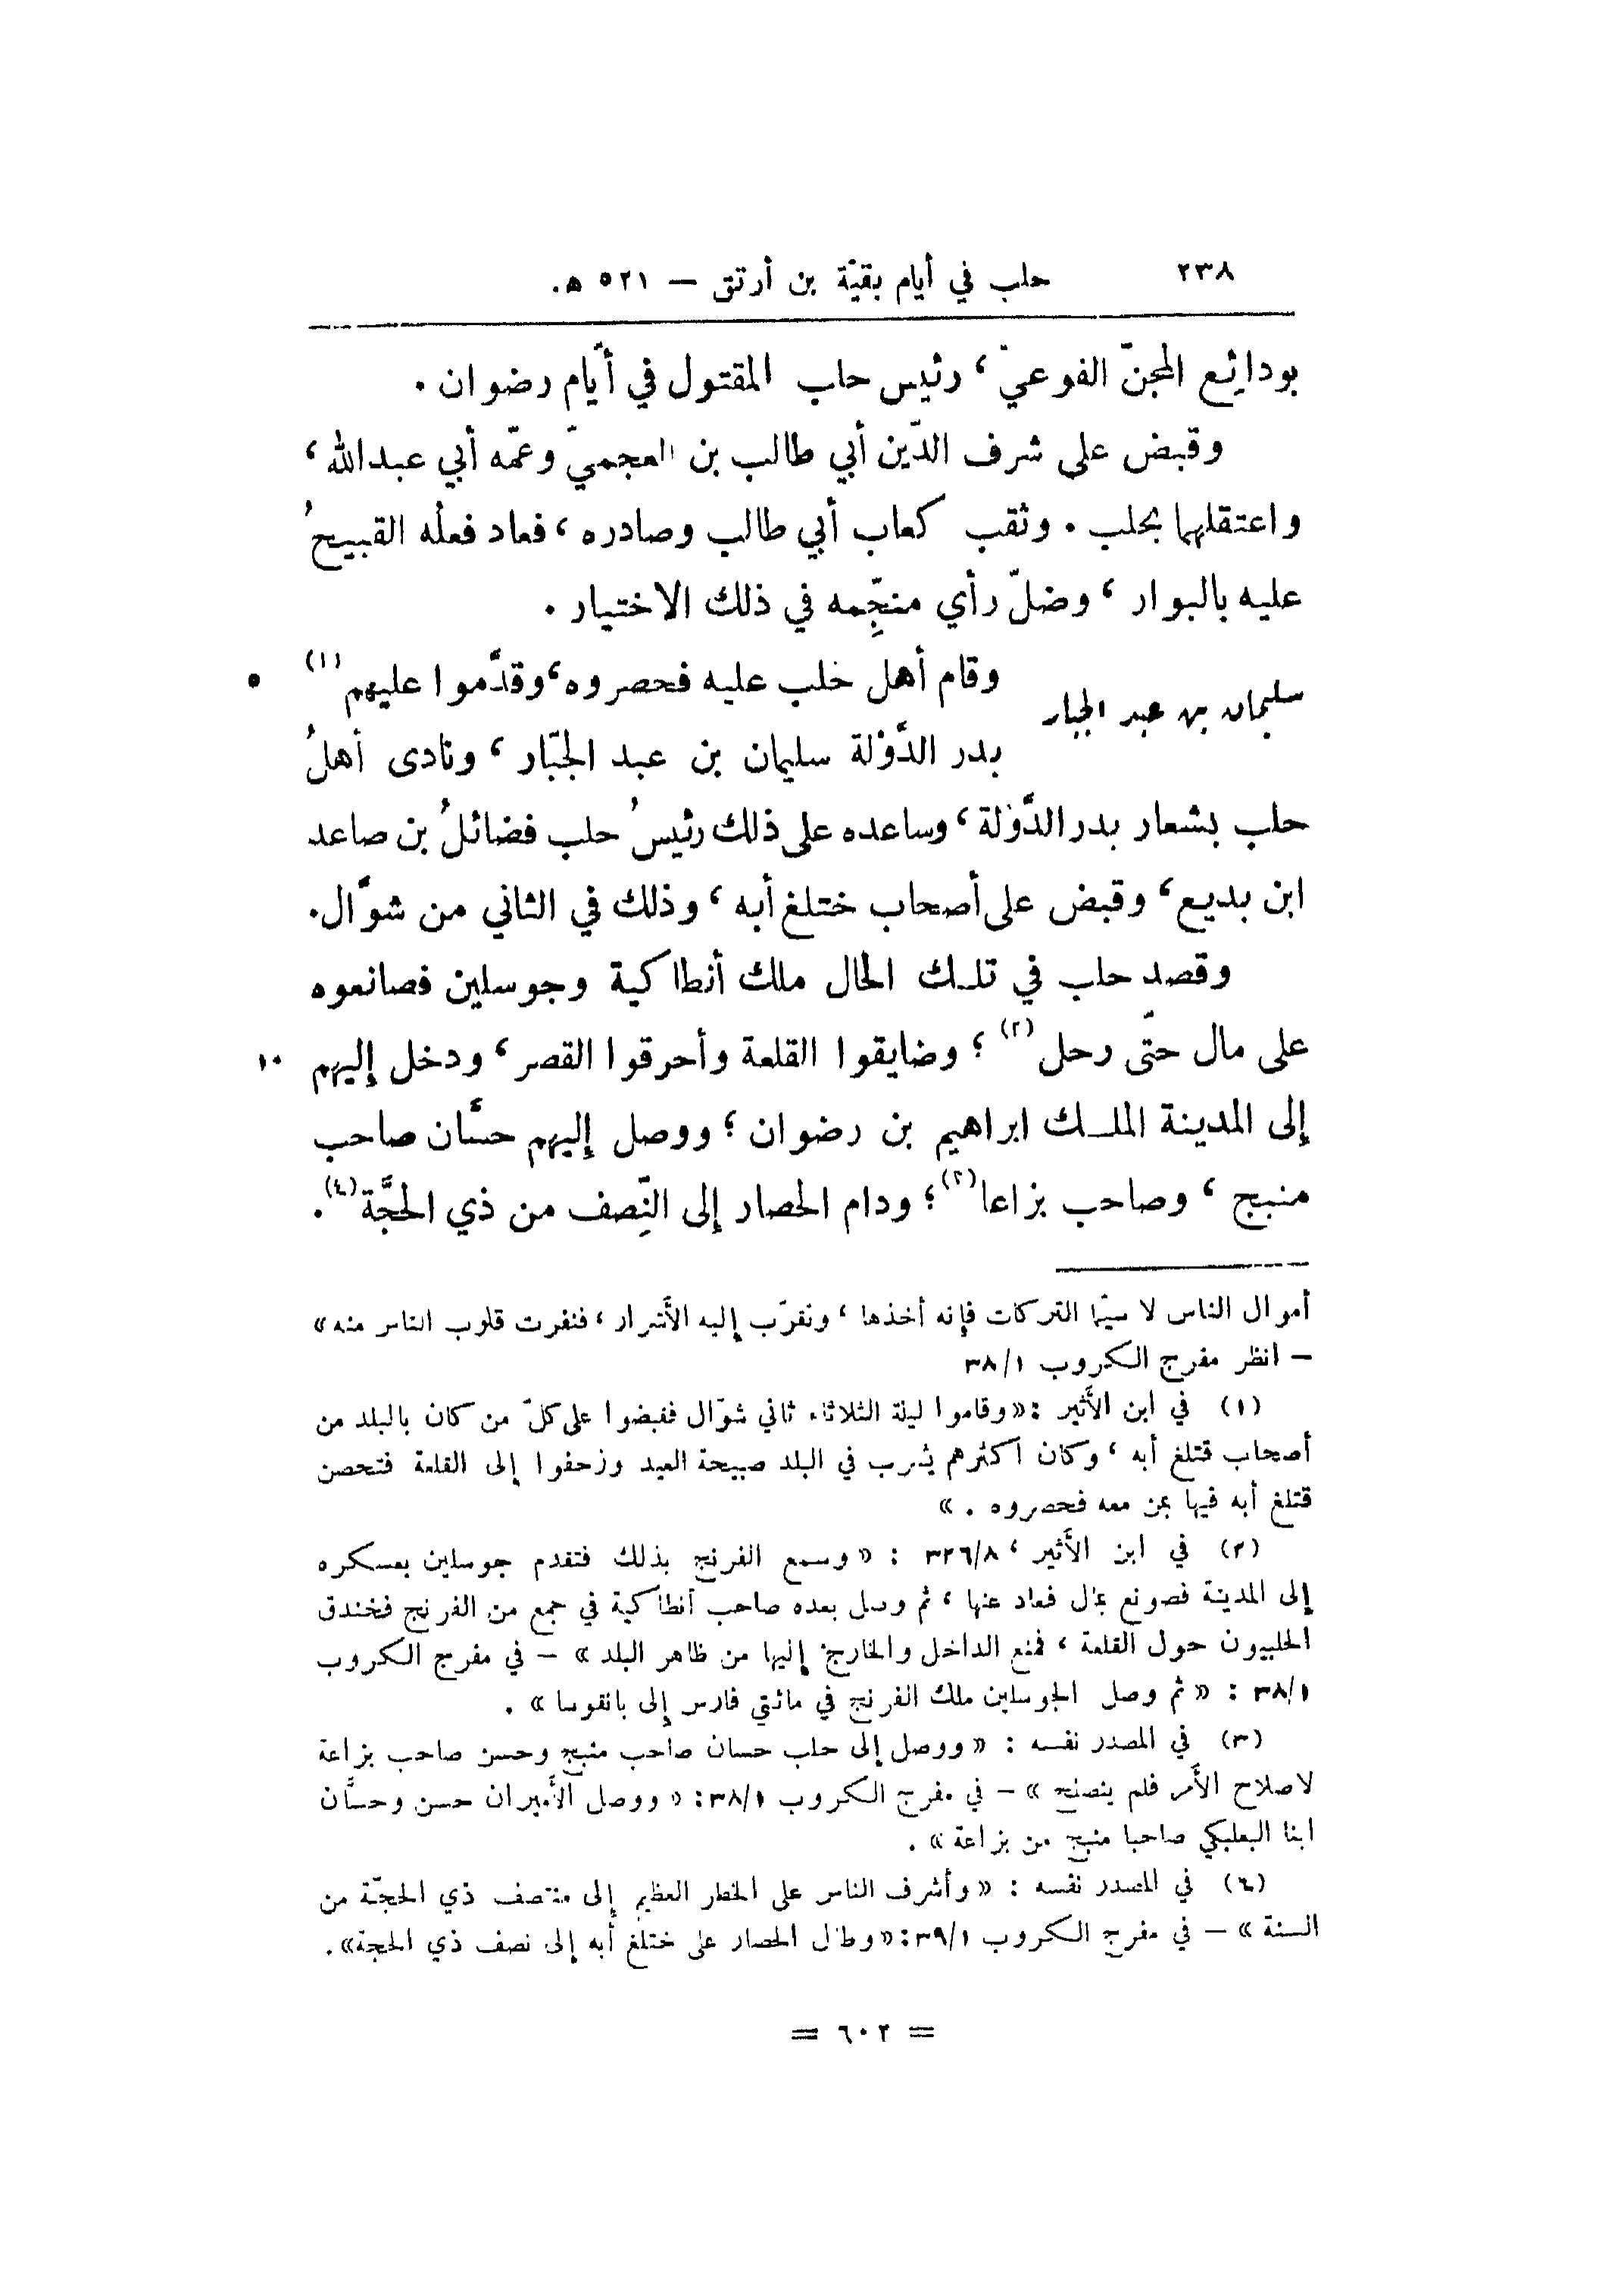 ٢٣٨
حلب في أيام بقيّة بن أرتق — ٥٢١ ه.
بودايِع المجنّ الفوعيّ ، رئيس حلب المقتول في أيّام رضوان .
وقبض على شرف الدّين أبي طالب بن العجميّ وعمّه أبي عبدالله ،
واعتقلهما بحلب . وثقب كعاب أبي طالب وصادره ، فعاد فعلُه القبيحُ
عليه بالبوار ، وضلّ رأي منجِّمه في ذلك الاختيار .
سليمان بن عبد الجبار
وقام أهل حلب عليه فحصروه ، وقدَّموا عليهم (١)
٥
بدر الدَّوْلة سليمان بن عبد الجبّار ، ونادى أهلُ
حلب بشعار بدر الدَّوْلة ، وساعده على ذلك رئيسُ حلب فضائلُ بن صاعد
ابن بديع ، وقبض على أصحاب ختلغ أبه ، وذلك في الثاني من شوَّال .
وقصد حلب في تلـك الحال ملك أنطاكية وجوسلين فصانعوه
على مال حتّى رحل (٢) ؛ وضايقوا القلعة وأحرقوا القصر ، ودخل إليهم
١٠
إلى المدينة الملـك ابراهيم بن رضوان ؛ ووصل إليهم حسَّان صاحب
منبج ، وصاحب بزاعا (٣) ؛ ودام الحصار إلى النِّصف من ذي الحجَّة (٤) .
أموال الناس لا سيّما التركات فإنه أخذها ، وتقرّب إليه الأشرار ، فنفرت قلوب الناس منه »
— انظر مفرج الكروب ٣٨/١
(١) في ابن الأثير : « وقاموا ليلة الثلاثاء ثاني شوّال فقبضوا على كلّ من كان بالبلد من
أصحاب قتلغ أبه ، وكان أكثرهم يشرب في البلد صبيحة العيد وزحفوا إلى القلعة فتحصن
قتلغ أبه فيها بمن معه فحصروه . »
(٢) في ابن الأثير ، ٣٢٦/٨ : « وسمع الفرنج بذلك فتقدم جوسلين بعسكره
إلى المدينة فصونع بمال فعاد عنها ، ثم وصل بعده صاحب أنطاكية في جمع من الفرنج فخندق
الحلبيون حول القلعة ، فمنع الداخل والخارج إليها من ظاهر البلد » — في مفرج الكروب
٣٨/١ : « ثم وصل الجوسلين ملك الفرنج في مائتي فارس إلى بانقوسا » .
(٣) في المصدر نفسه : « ووصل إلى حلب حسان صاحب منبج وحسن صاحب بزاعة
لاصلاح الأمر فلم ينصلح » — في مفرج الكروب ٣٨/١ : « ووصل الأميران حسن وحسَّان
ابنا البعلبكي صاحبا منبج من بزاعة » .
(٤) في المصدر نفسه : « وأشرف الناس على الخطر العظيم إلى منتصف ذي الحجّة من
السنة » — في مفرج الكروب ٣٩/١ : « وطال الحصار على ختلغ أبه إلى نصف ذي الحجة » .
= ٦٠٢ =